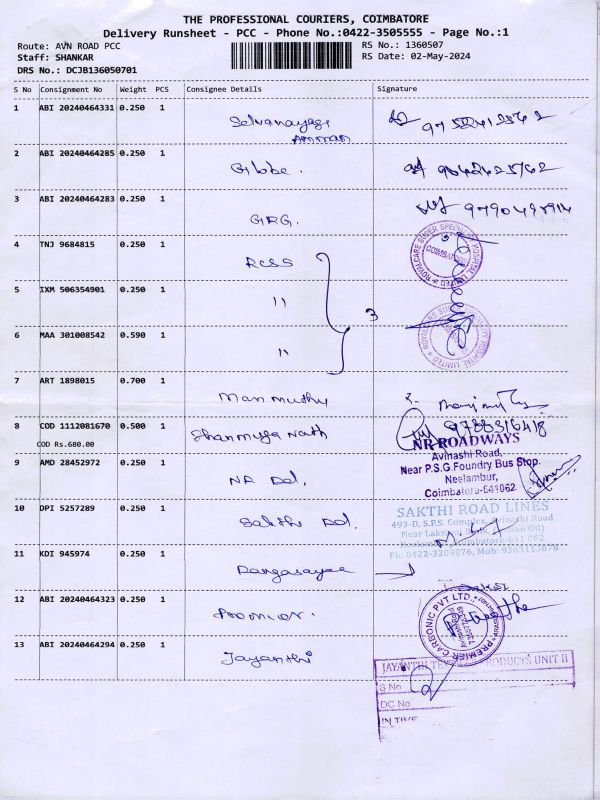 THE PROFESSIONAL COURIERS, COIMBATORE
Delivery Runsheet - PCC - Phone No.:0422-3505555 - Page No.:1
Route: AVN ROAD PCC RS No.: 1360507
Staff: SHANKAR RS Date: 02-May-2024
DRS No.: DCJB136050701
S No Consignment No Weight PCS Consignee Details Signature
1 ABI 20240464331 0.250 1 Selvanayagi
Amman
2 ABI 20240464285 0.250 1 Globe.
3 ABI 20240464283 0.250 1 GRG.
4 TNJ 9684815 0.250 1 RCSS
5 IXM 506354901 0.250 1 "
3
6 MAA 301008542 0.590 1 "
7 ART 1898015 0.700 1 Manimuthu
8 COD 1112081670 0.500 1 Shanmuga Nath 9788316418
COD Rs.680.00
NR ROADWAYS
Avinashi Road,
Near P.S.G.Foundry Bus Stop.
Neelambur,
Coimbatore-641062
9 AMD 28452972 0.250 1 NR Rd.
10 DPI 5257289 0.250 1 Sakthi Rd.
SAKTHI ROAD LINES
493-D, S.P.S. Complex, Avinashi Road
11 KDI 945974 0.250 1 Rangasayee
12 ABI 20240464323 0.250 1 Premier.
PREMIER CARBONIC PVT LTD
13 ABI 20240464294 0.250 1 Jayanthi
JAYANTHI PRODUCTS UNIT II
S No
DC No